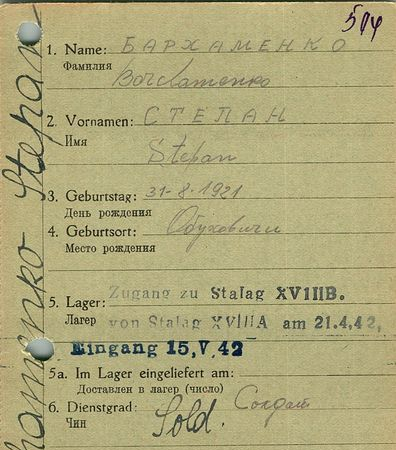 504
1. Name: БАРХАМЕНКО
Фамилия
2. Vornamen: СТЕПАН
Имя
Stepan
3. Geburtstag: 31-8-1921
День рождения
4. Geburtsort: Обуховичи
Место рождения
Zugang zu Stalag XVIIIB.
5. Lager:
Лагер von Stalag XVIIIA am 21.4.42.
Eingang 15.V.42
5a. Im Lager eingeliefert am:
Доставлен в лагер (число)
6. Dienstgrad: Sold. Солдат
Чин
hamenko Stepan